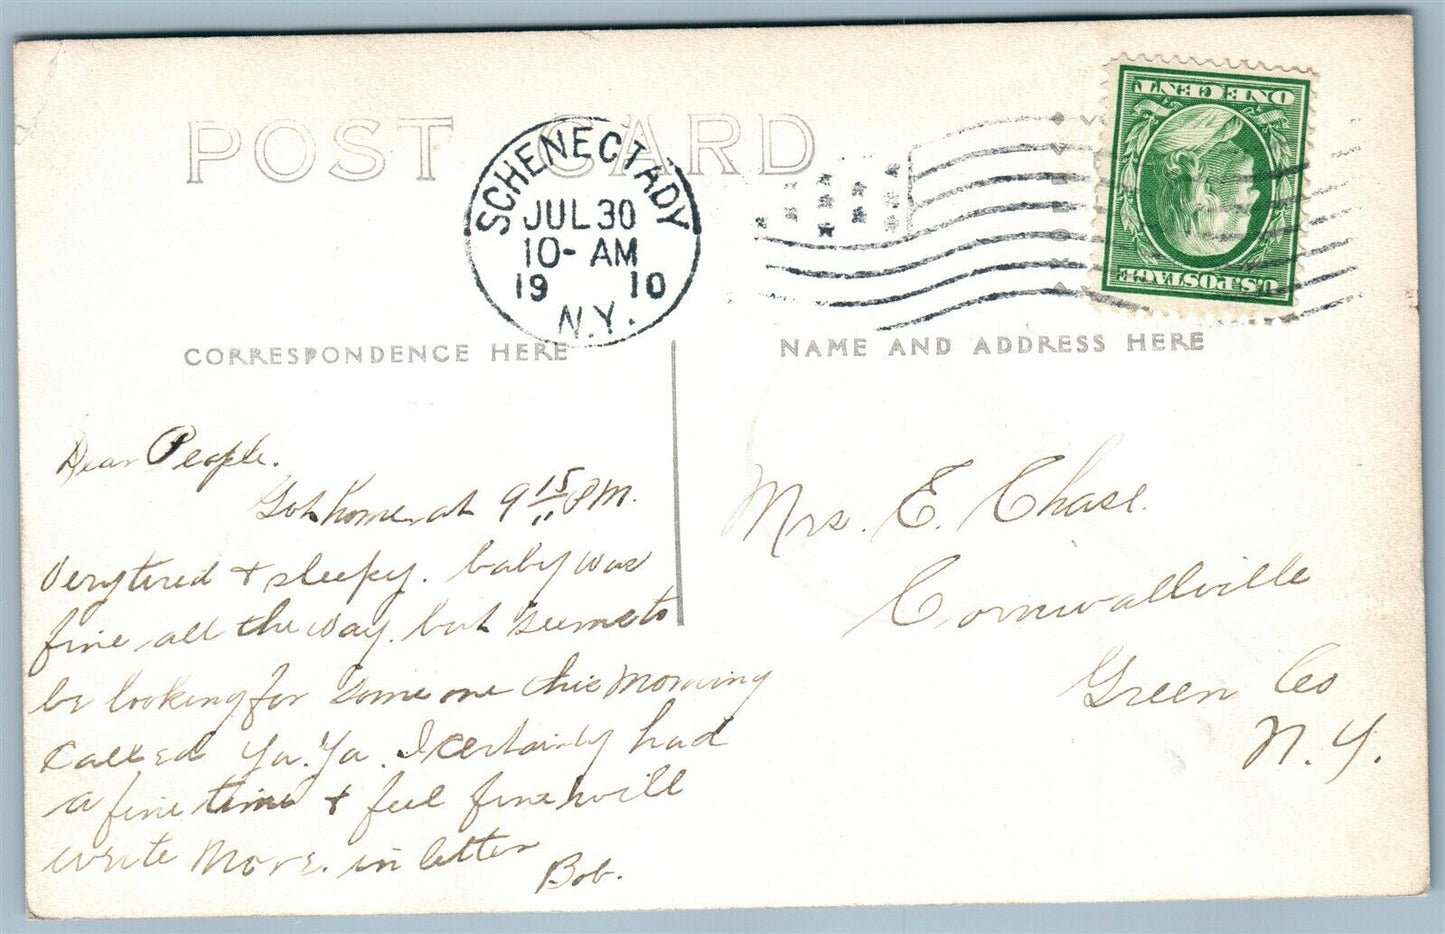 POST CARD
SCHENECTADY
JUL 30
10- AM
19 10
N.Y.
ONE CENT
U.S. POSTAGE
CORRESPONDENCE HERE
NAME AND ADDRESS HERE
Dear People.
Got home at 9 15 P.M.
Very tired + sleepy. baby was
fine all the way. but seems to
be looking for some one this morning
called Ya. Ya. I certainly had
a fine time + feel fine will
write more. in letter
Bob.
Mrs. E. Chase.
Cornwallville
Green Co
N. Y.